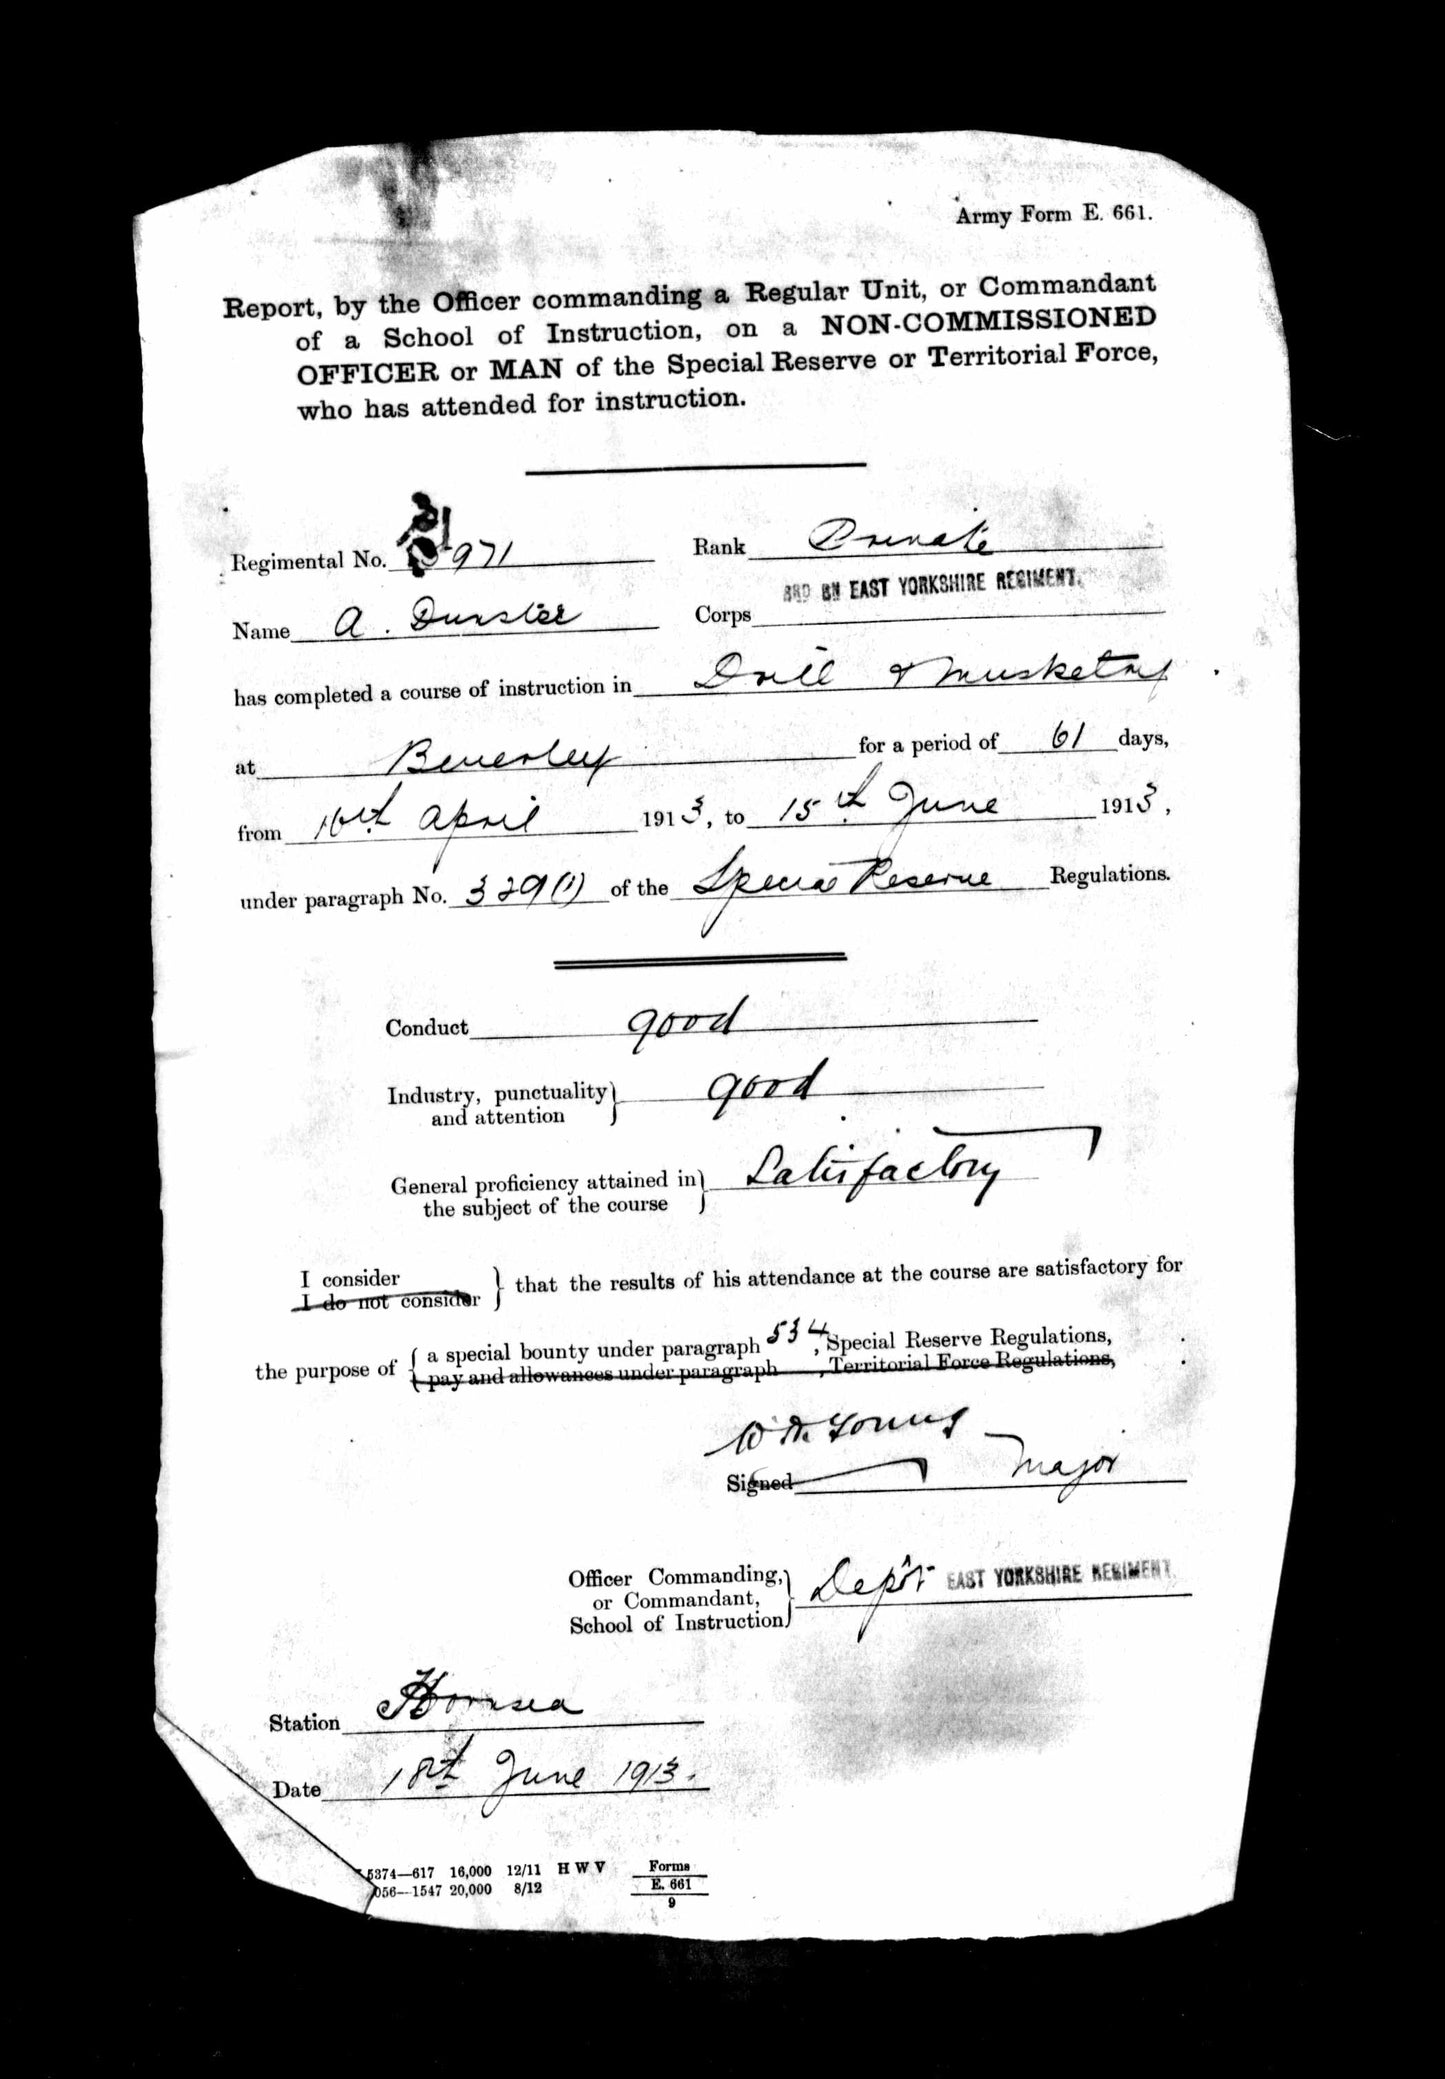 Army Form E. 661.
Report, by the Officer commanding a Regular Unit, or Commandant
of a School of Instruction, on a NON-COMMISSIONED
OFFICER or MAN of the Special Reserve or Territorial Force,
who has attended for instruction.
Regimental No. 971 Rank Private
Name A. Dunster Corps 3RD BN EAST YORKSHIRE REGIMENT.
has completed a course of instruction in Drill & Musketry
at Beverley for a period of 61 days,
from 16th April 1913, to 15th June 1913,
under paragraph No. 329(1) of the Special Reserve Regulations.
Conduct good
Industry, punctuality
and attention } good
General proficiency attained in
the subject of the course } Satisfactory
I consider
I do not consider } that the results of his attendance at the course are satisfactory for
the purpose of { a special bounty under paragraph 534, Special Reserve Regulations,
pay and allowances under paragraph , Territorial Force Regulations,
W A Young
Signed Major
Officer Commanding,
or Commandant,
School of Instruction } Depôt EAST YORKSHIRE REGIMENT.
Station Hornsea
Date 18th June 1913.
5374—617 16,000 12/11 H W V Forms
056—1547 20,000 8/12 E. 661
9